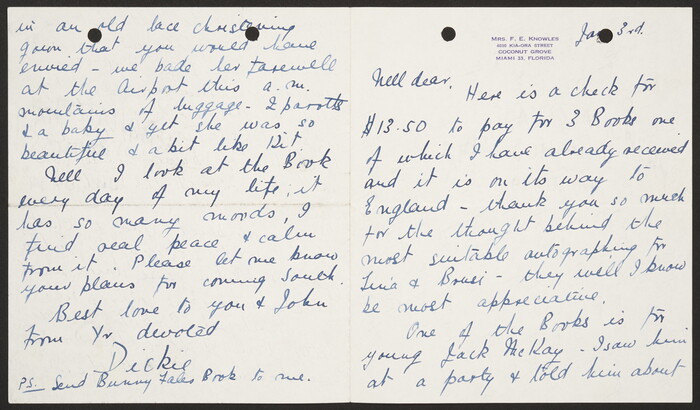 MRS. F. E. KNOWLES
KIA-ORA STREET
COCONUT GROVE
MIAMI 33, FLORIDA
Jan 3rd.
Nell dear, Here is a check for
$13.50 to pay for 3 Books one
of which I have already received
and it is on its way to
England - thank you so much
for the thought behind the
most suitable autographing for
Tina & - they will I know
be most appreciative.
One of the Books is for
young Jack McKay - I saw him
at a party & told him about
in an old lace christening
gown that you would have
envied - we bade her farewell
at the Airport this a.m.
mountains of luggage - 2 parrots
& a baby & yet she was so
beautiful & a bit like Kit
Nell I look at the Book
every day of my life; it
has so many moods, I
find real peace & calm
from it. Please let me know
your plans for coming South.
Best love to you & John
from Yr devoted
Dickie
PS. Send Bunny Tales Book to me.